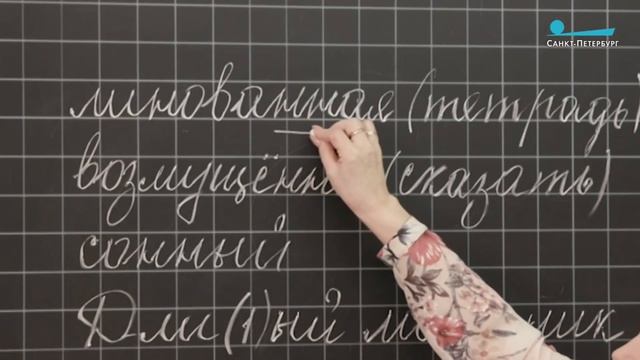 Санкт-Петербург
линованная (тетрадь)
(сказать)
сонный
Дли(1)ый